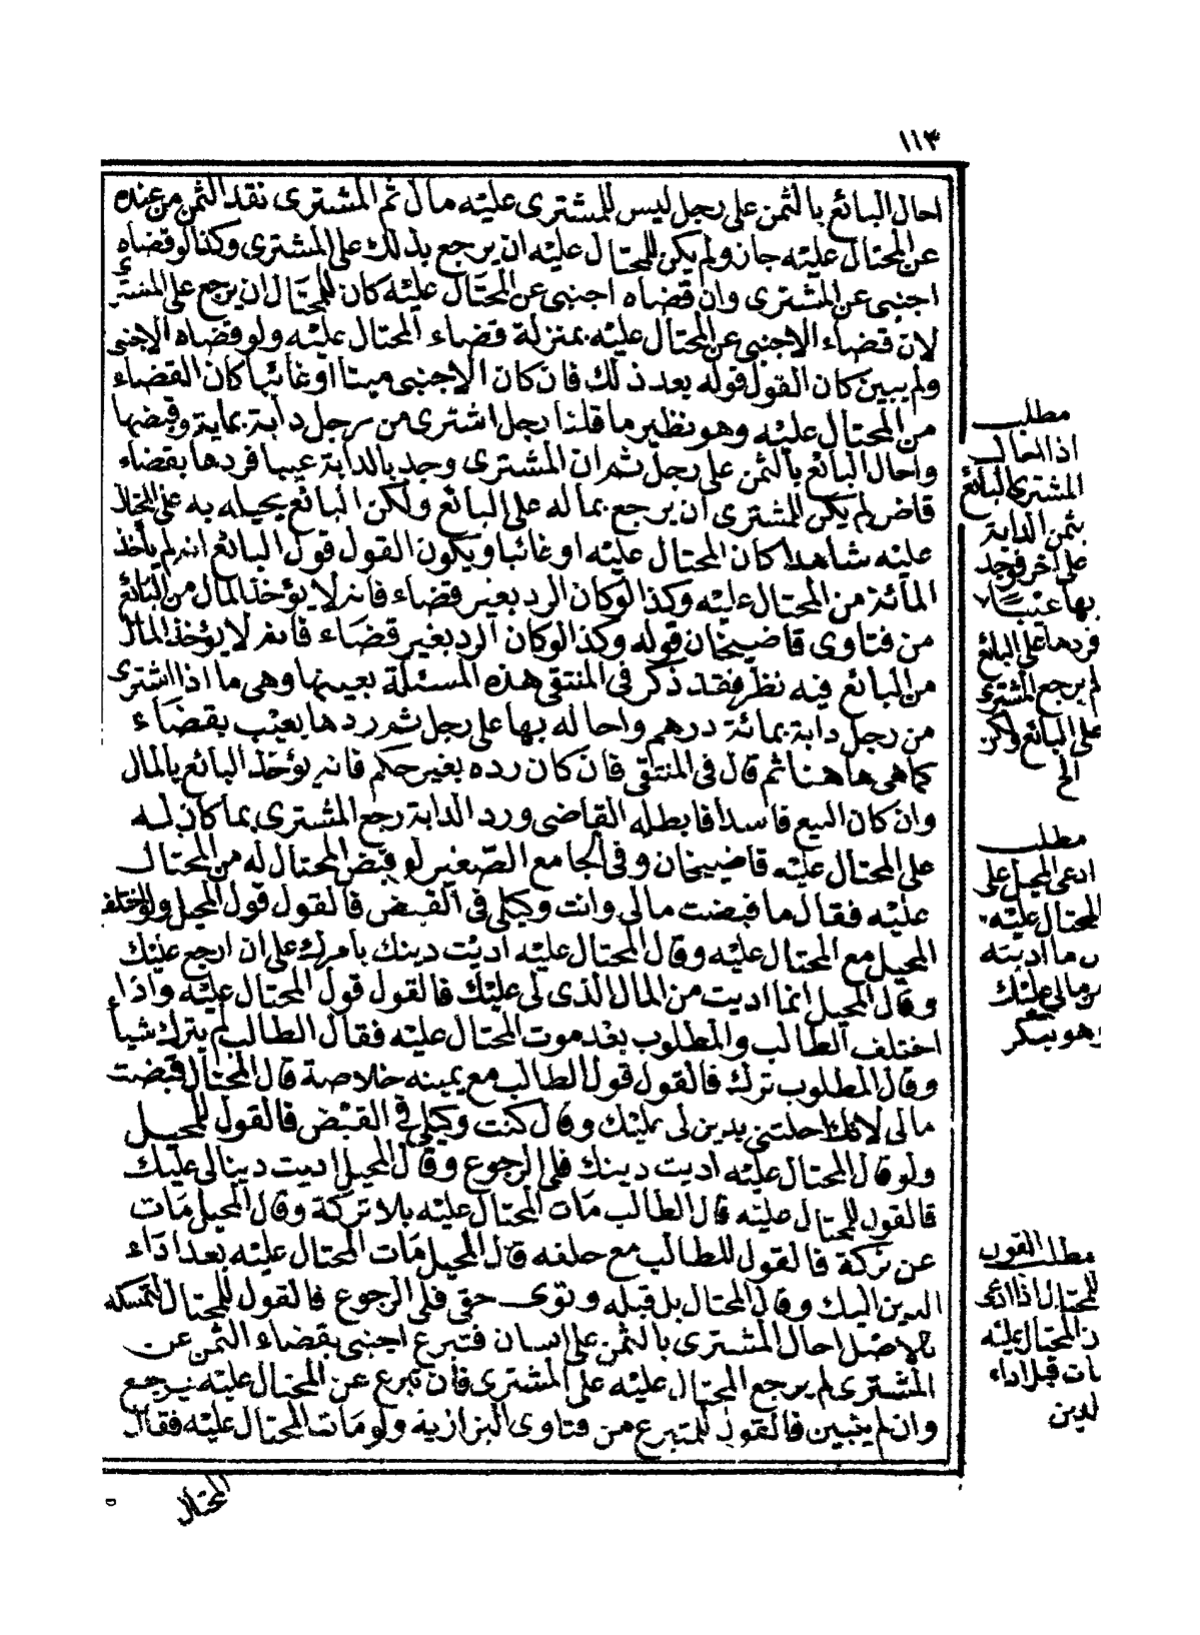 ١١٣
احال البائع بالثمن على رجل ليس للمشترى عليه مال ثم المشترى نقد الثمن من عنده
عن المحتال عليه جاز ولم يكن للمحتال عليه ان يرجع بذلك على المشترى وكذا لو قضاه
اجنبى عن المشترى وان قضاه اجنبى عن المحتال عليه كان للمحتال ان يرجع على المشترى
لان قضاء الاجنبى عن المحتال عليه بمنزلة قضاء المحتال عليه ولو قضاه الاجنبى
ولم يبين كان القول قوله بعد ذلك فان كان الاجنبى ميتا او غائبا كان القضاء
من المحتال عليه وهو نظير ما قلنا رجل اشترى من رجل دابة بماية وقبضها
واحال البائع بالثمن على رجل ثم ان المشترى وجد بالدابة عيبا فردها بقضاء
قاض لم يكن للمشترى ان يرجع بماله على البائع ولكن البائع يحيله به على المحتال
عليه شاهدا كان المحتال عليه او غائبا ويكون القول قول البائع انه لم يأخذ
المائة من المحتال عليه وكذا لو كان الرد بغير قضاء فانه لا يؤخذ المال من البائع
من فتاوى قاضيخان قوله وكذا لو كان الرد بغير قضاء فانه لا يؤخذ المال
من البائع فيه نظر فقد ذكر فى المنتقى هذه المسئلة بعينها وهى ما اذا اشترى
من رجل دابة بمائة درهم واحاله بها على رجل ثم ردها بعيب بقضاء
كما هى هاهنا ثم قال فى المنتقى فان كان رده بغير حكم فانه يؤخذ البائع بالمال
وان كان البيع فاسدا فابطله القاضى ورد الدابة رجع المشترى بما كان له
على المحتال عليه قاضيخان وفى الجامع الصغير لو قبض المحتال له من المحتال
عليه فقال ما قبضت مالى وانت وكيلى فى القبض فالقول قول المحيل ولو اختلف
المحيل مع المحتال عليه وقال المحتال عليه اديت دينك بامرك على ان ارجع عليك
وقال المحيل انما اديت من المال الذى لى عليك فالقول قول المحتال عليه واذاء
اختلف الطالب والمطلوب بعد موت المحتال عليه فقال الطالب لم يترك شيأ
وقال المطلوب ترك فالقول قول الطالب مع يمينه خلاصة قال المحتال قبضت
مالى لانك احلتنى بدين لى عليك وقال كنت وكيلى فى القبض فالقول للمحيل
ولو قال المحتال عليه اديت دينك فلى الرجوع وقال المحيل اديت دينا لى عليك
فالقول للمحتال عليه قال الطالب مات المحتال عليه بلا تركة وقال المحيل مات
عن تركة فالقول للطالب مع حلفه قال المحيل مات المحتال عليه بعد اداء
الدين اليك وقال المحتال بل قبله وتوى حقى فلى الرجوع فالقول للمحتال لتمسكه
بالاصل احال المشترى بالثمن على انسان فتبرع اجنبى بقضاء الثمن عن
المشترى لم يرجع المحتال عليه على المشترى فان تبرع عن المحتال عليه يرجع
وان لم يتبين فالقول للمتبرع من فتاوى البزازية ولو مات المحتال عليه فقال
المحتال
مطلب
اذا احال
المشترى البائع
بثمن الدابة
على آخر فوجد
بها عيبا
فردها على البائع
لم يرجع المشترى
على البائع ولكن
الخ
مطلب
ادعى المحيل على
المحتال عليه
ما اديته
من مالى عليك
وهو ينكر
مطلب القول
للمحتال اذا ادعى
ن المحتال عليه
ات قبل اداء
لدين